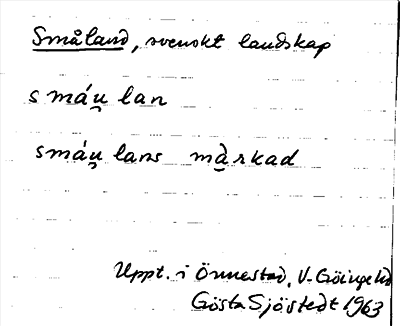 Småland, svenskt landskap
smáu̯lan
smáu̯lans mà̱rkad
Uppt. i Önnestad, V. Göinge hd
Gösta Sjöstedt 1963